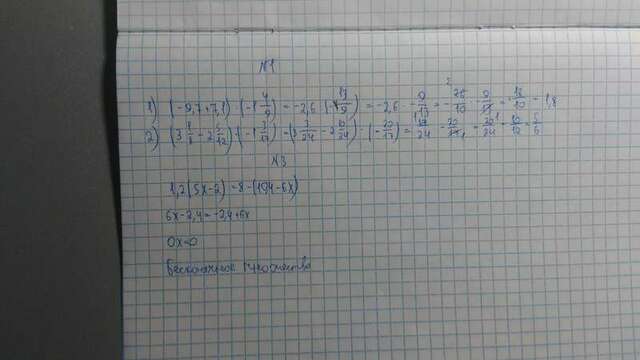 N1
1) (-9,7+7,1) : (-1 4/9) = -2,6 : (-13/9) = -2,6 · -9/13 = -26/10 · -9/13 = 18/10 = 1,8
2) (3 1/8 - 2 5/12) · (-1 3/17) = (3 3/24 - 2 10/24) · (-20/17) = 17/24 · -20/17 = -20/24 = -10/12 = -5/6
N3
1,2(5x-2) = 8-(10,4-6x)
6x-2,4=-2,4+6x
0x=0
Бесконечное множество